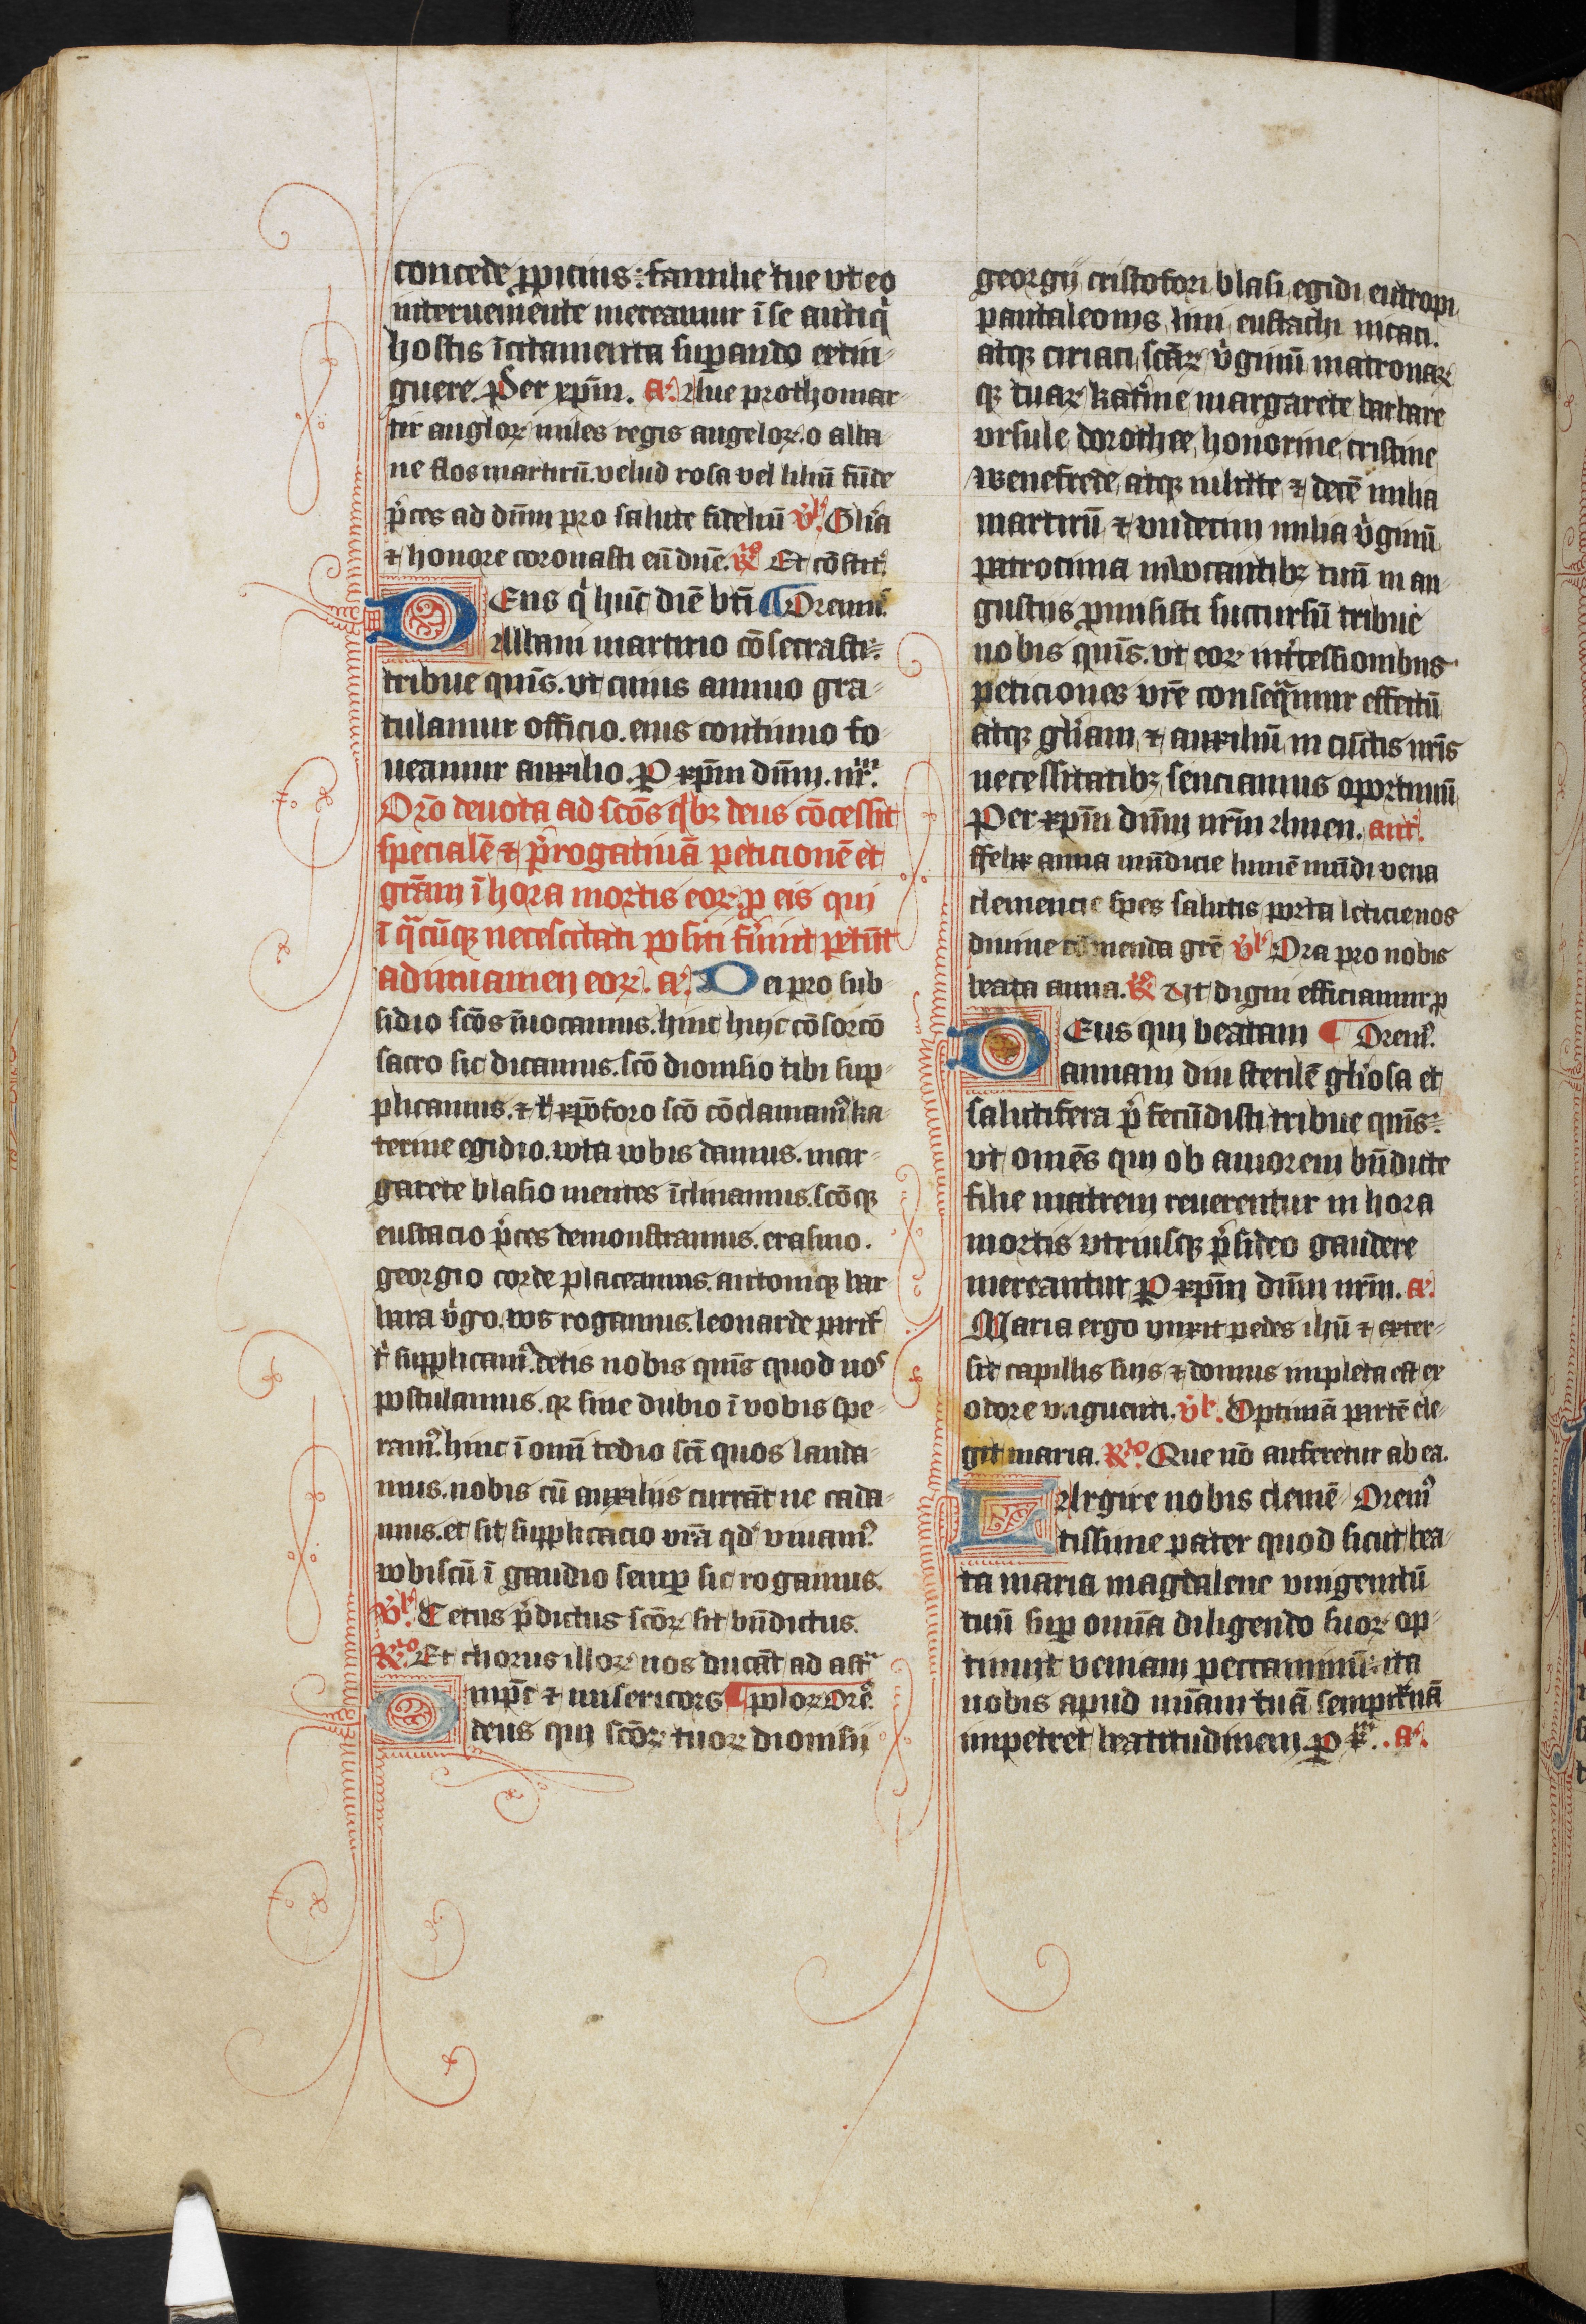 concede ꝓpicius: familie tue vt eo
interueniente mereamur ī se antiq̇
hostis īcitamenta suꝑando extin-
guere. Per xp̄m. a᷒. Aue prothomar-
tir angloꝝ miles regis angeloꝝ. o alba-
ne flos martirū. velud rosa vel liliū fūde
p̄ces ad dn̄m pro salute fideliū v̄. Gl̓ia
⁊ honore coronasti eū dn̄e. ℟ Et cōstit᷒.
Eus q̇ hūc diē bt̄i ¶ Oremꝰ
Albani martirio cōsecrasti:
tribue qm̄s. vt cuius annuo gra-
tulamur officio. eius continuo fo-
ueamur auxilio. P xp̄m dn̄m. nr̄m.
Or̄o deuota ad sc̄os q̇bꝫ deus cōcessit
specialē ⁊ p̄rogatiuā peticionē et
gr̄am ī hora mortis eoꝝ ꝓ eis qui
ī q̄cūqꝫ necescitati positi fu̓int petūt
ad iuuamen eoꝝ. a᷒. Dei pro sub-
sidio sc̄os īuocamus. hinc huic cōsorcō
sacro sic dicamus. sc̄o dionisio tibi sup-
plicamus. ⁊ t̓ xp̄oforo sc̄o cōclamamꝰ ka-
terine egidio. vota vobis damus. mar-
garete blasio mentes īclinamus. sc̄oqꝫ
eustacio p̄ces demonstramus. erasmo.
georgio corde placeamus. antoniqꝫ bar-
bara v̓go. vos rogamus. leonarde parit̓
t̓ supplicamꝰ. detis nobis qm̄s quod nos
postulamus. qꝛ sine dubio ī vobis spe-
ramꝰ. hinc ī omī tedio sc̄i quos lauda-
mus. nobis cū auxiliis currāt ne cada-
mus. et sit supplicacio vr̄a qd̓ viuamꝰ
vobiscū ī gaudio semꝑ sic rogamus.
v̄. Cetus p̄dictus sc̄oꝝ sit bn̄dictus.
℟. Et chorus illoꝝ nos ducāt ad astra
mp̄s ⁊ misericors ¶ poloꝝ Ore᷒.
deus qui sc̄oꝝ tuoꝝ dionisii
georgij cristofori blasi egidi eutropi
pantaleonis lini eustachi nicaci.
atqꝫ ciriaci, sc̄aꝝ v̓ginū matronaꝝ
qꝫ tuaꝝ kat̓ine margarete barbare
vrsule dorothee, honorine, cristine
wenefrede, atqꝫ iulitte ⁊ decē milia
martirū ⁊ vndecim milia v̓ginū
patrocinia inuocantibꝫ tuū in an-
gustijs ꝓmisisti succursū tribue
nobis qm̄s. vt eoꝝ int̓cessionibus
peticiones vr̄e conseq̄mur effectū
atqꝫ gl̓iam, ⁊ auxiliū in cūctis nr̄is
necessitatibꝫ senciamus oportunū
Per xp̄m dn̄m nr̄m Amen. ant̓.
ffelix anna mūdicie lumē mūdi vena
clemencie spes salutis porta leticie nos
diuine cōmenda gr̄e v̄. Ora pro nobis
beata anna. ℟ Vt digni efficiamur ꝓ
Eus qui beatam ¶ Oremꝰ.
annam diu sterilē gl̓iosa et
salutifera p̄ fecūdisti tribue qm̄s:
vt omēs qui ob amorem bn̄dicte
filie matrem reuerentur in hora
mortis vtriusqꝫ p̄sideo gaudere
mereantur P xp̄m dn̄m nr̄m. a᷒.
Maria ergo vnxit pedes ihū ⁊ exter-
sit capillis suis ⁊ domus impleta est ex
odore vnguenti. v̄. Optimā partē ele-
git maria. ℟. Que nō auferetur ab ea.
Argire nobis clemē- Oremꝰ
tissime pater quod sicut bea-
ta maria magdalene vnigenitū
tuū suꝑ omīa diligendo suoꝝ op-
tinuit veniam peccaminū: ita
nobis apud mīam tuā sempit̓nā
impetret beatitudinem P. a᷒.